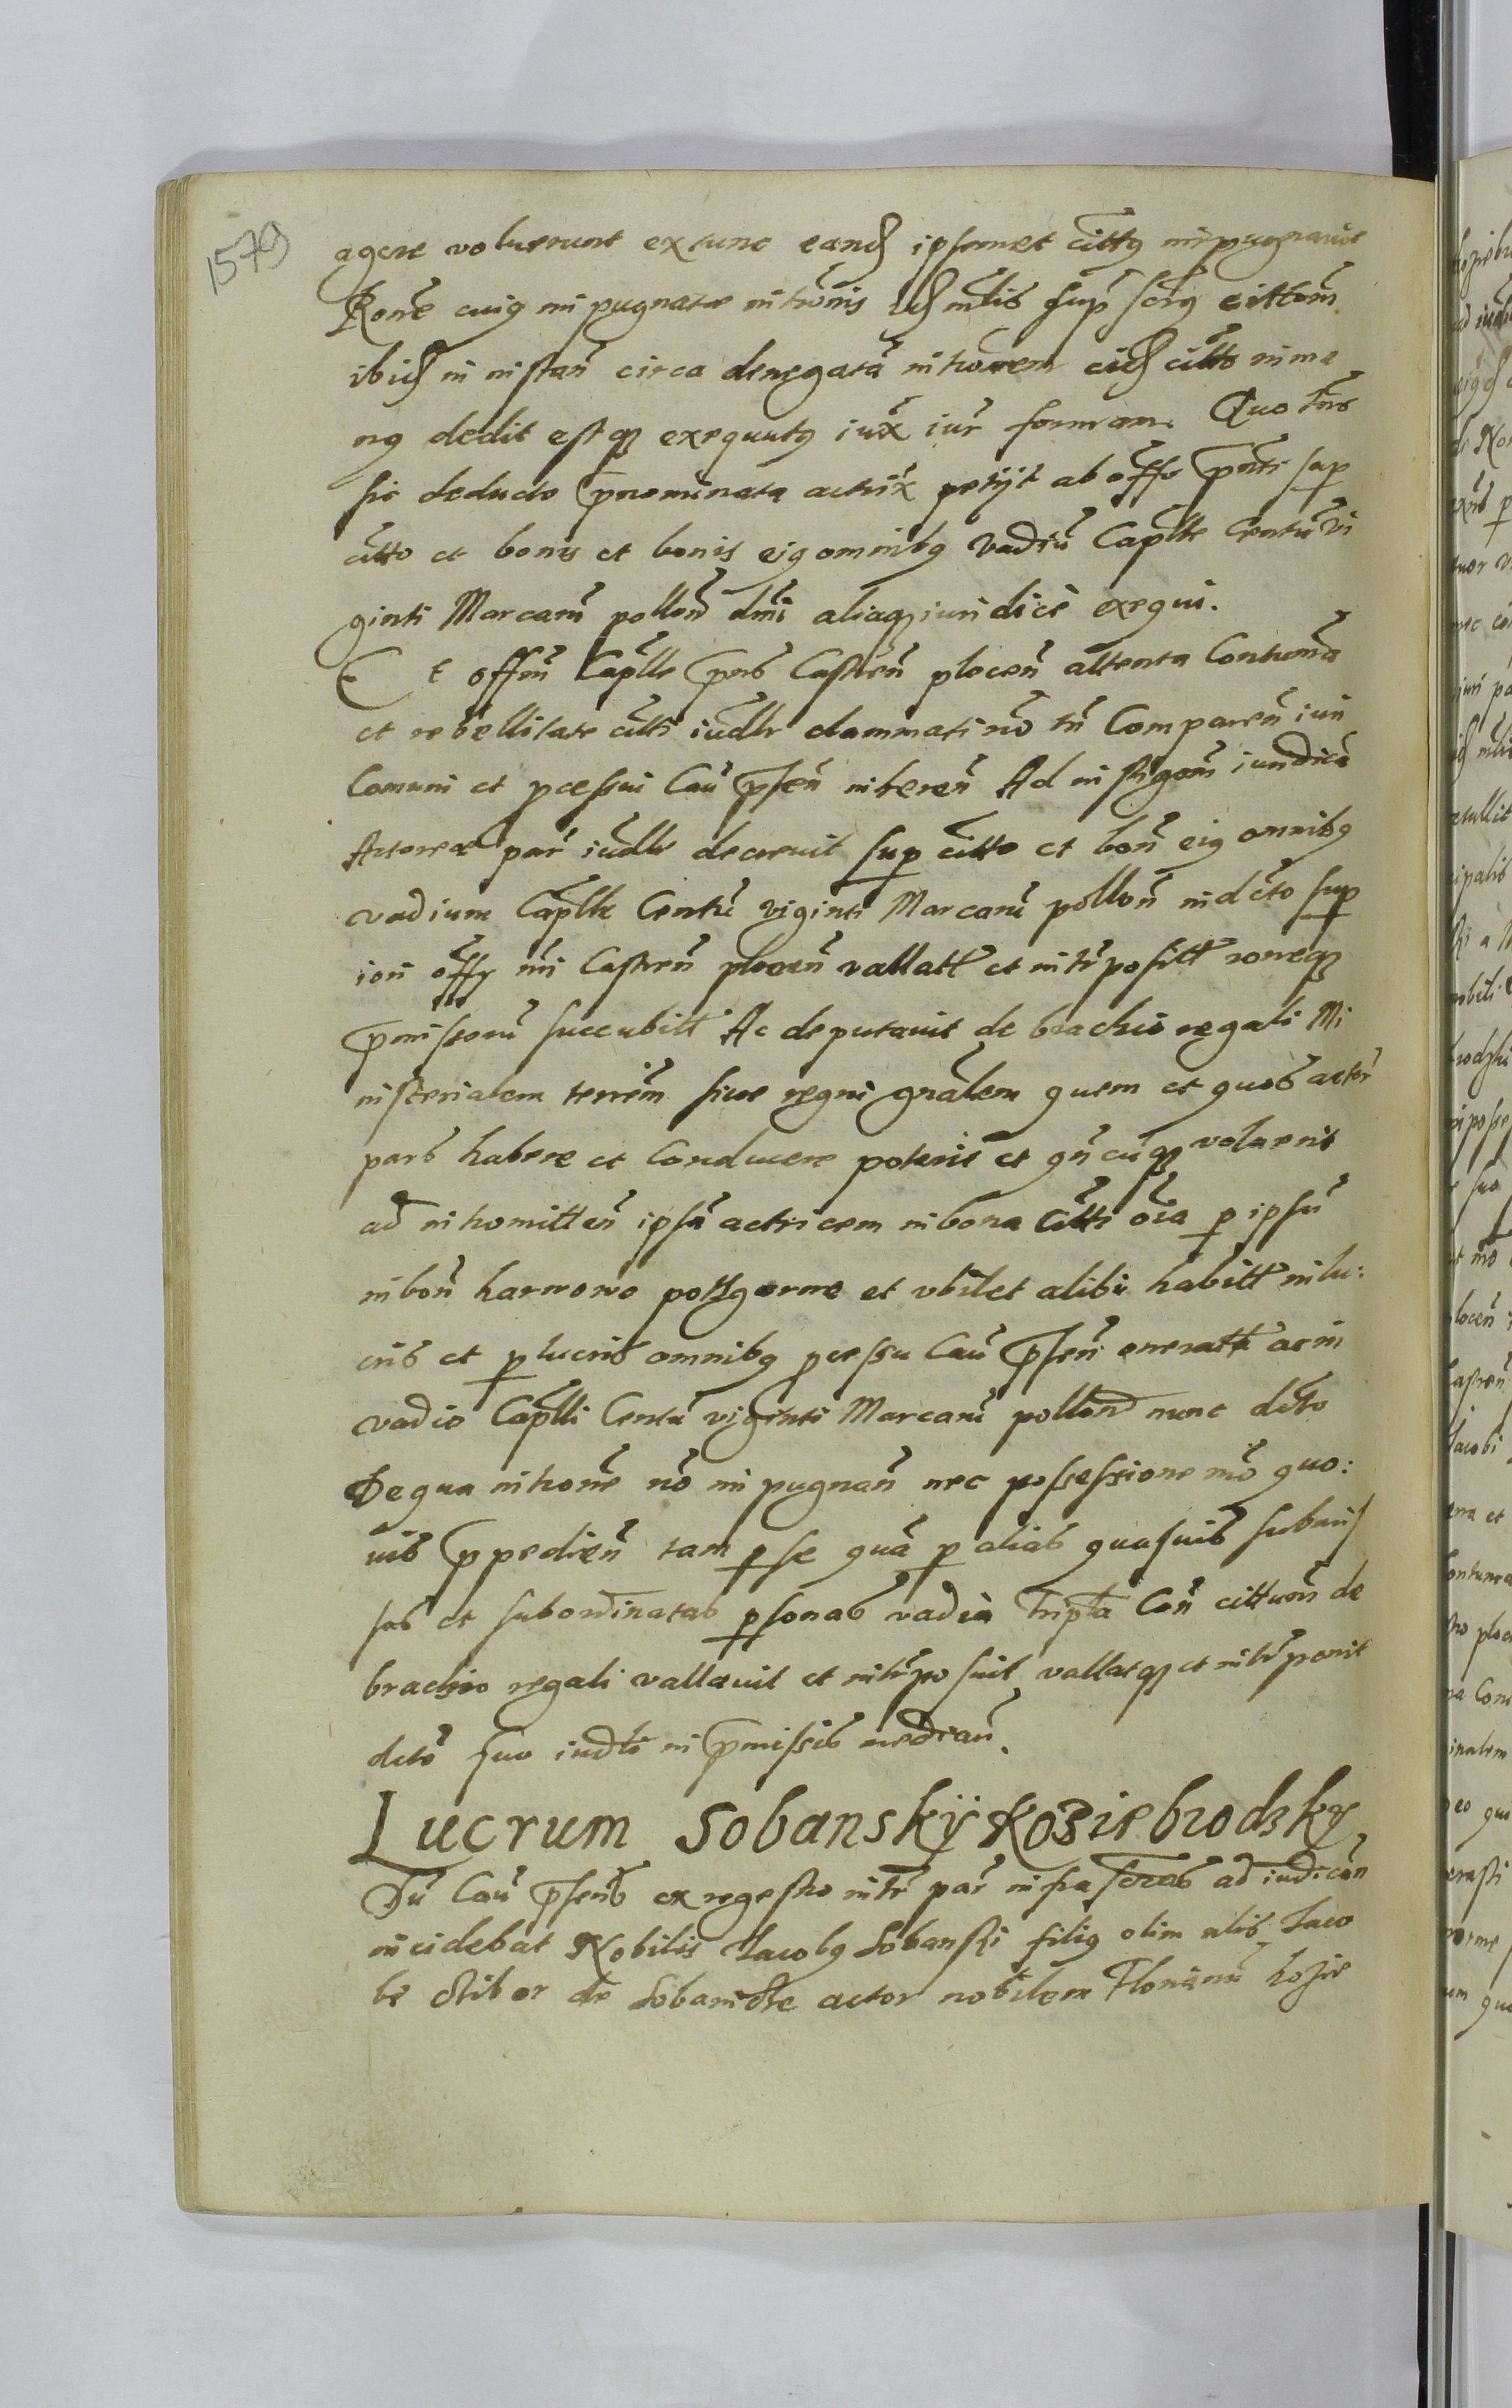 1579
agere voluerunt extunc eand ipsemet citt9 inpugnavit
Rone cui9 inpugnate intronis id mlis sup scrip9 cittom
ibid in instan circa denegata intronem eid citto inma
n9 dedit estq3 exequut9 iux iur formam. Quo tns
sic deducto pnominata actrix petijt ab offo pnti sup
citto et bonis et bonis ei9 omnib9 vadiu Caplle Centu vi
ginti Marcaru pollon dmi aliaq3 iuridice exequi.
Et offm Caplle pns Castren plocen attenta Contuma
et rebellitate citti iudlr dammati no tn Comparen iuri
Comuni et pcessui Cau psen inheren Ad instigaom iuridica
Actorea par iudlr decrevit sup citto et bon ei9 omnib9
vadium Caplle Centu viginti Marcaru pollon indcto sup
iori offo mi Castren plocen vallatt et intrpositt roneq3
pmissoru succubitt Ac deputavit de brachio regali Mi
nisterialem terrem sive regni gnalem quem et quos actor
pars habere et Conducere poterit et qncuq3 voluerit
ad intromitten ipsa actricem in bona citti oia p ipsu
in bon harwowo pottgorne et vbilet alibi habitt in lu:
cris et p lucris omnib9 pcessu Cau psen oneratt ac in
vadio Caplli Centu viginti Marcaru pollon nunc dcto
De qua introne no inpugnan nec possessione mo quo:
vis ppedien tam p se qua p alias quasvis submis
sas et subordinatas psonas vadia tripla Con cittum de
brachio regali vallavit et intrposuit vallatq3 et intrponit
dcto suo iudlo in pmissis median.
Lucrum Sobanskÿ Koziebrodzky
Du Cau psens ex regestro intr par infra scras ad iudican
incidebat Nobilis Jacob9 Sobanski fili9 olim nlis Jaco
bi Stibor de Sobanicze actor nobilem Florianu kozie